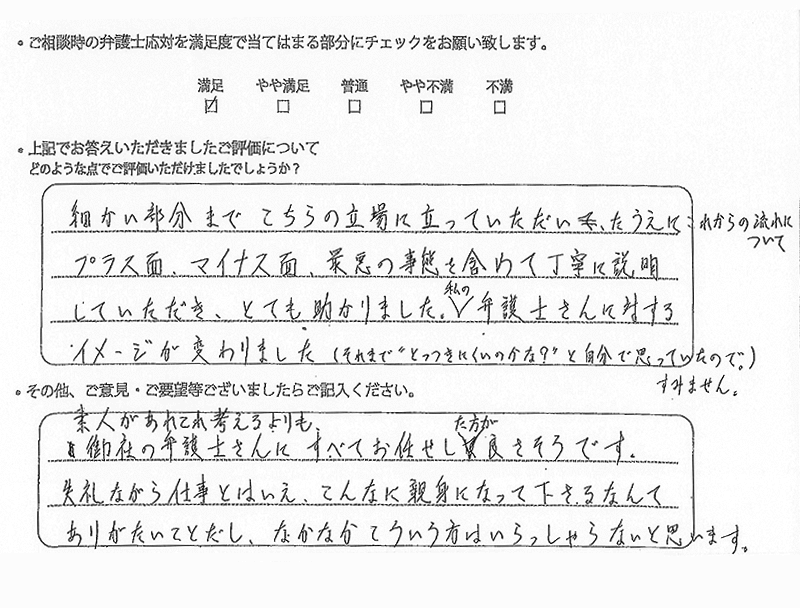 • ご相談時の弁護士応対を満足度で当てはまる部分にチェックをお願い致します。
満足 やや満足 普通 やや不満 不満
☑ □ □ □ □
• 上記でお答えいただきましたご評価について
どのような点でご評価いただけましたでしょうか？
細かい部分まで こちらの立場に立っていただいた うえに これからの流れに
ついて
プラス面、マイナス面、最悪の事態を含めて丁寧に説明
していただき、とても助かりました。私の弁護士さんに対する
イメージが変わりました（それまで“とっつきにくいのかな？”と自分で思っていたので。）
すみません。
• その他、ご意見・ご要望等ございましたらご記入ください。
素人があれこれ考えるよりも、
御社の弁護士さんに すべてお任せした方が良さそうです。
失礼ながら仕事とはいえ、こんなに親身になって下さるなんて
ありがたいことだし、なかなかこういう方はいらっしゃらないと思います。